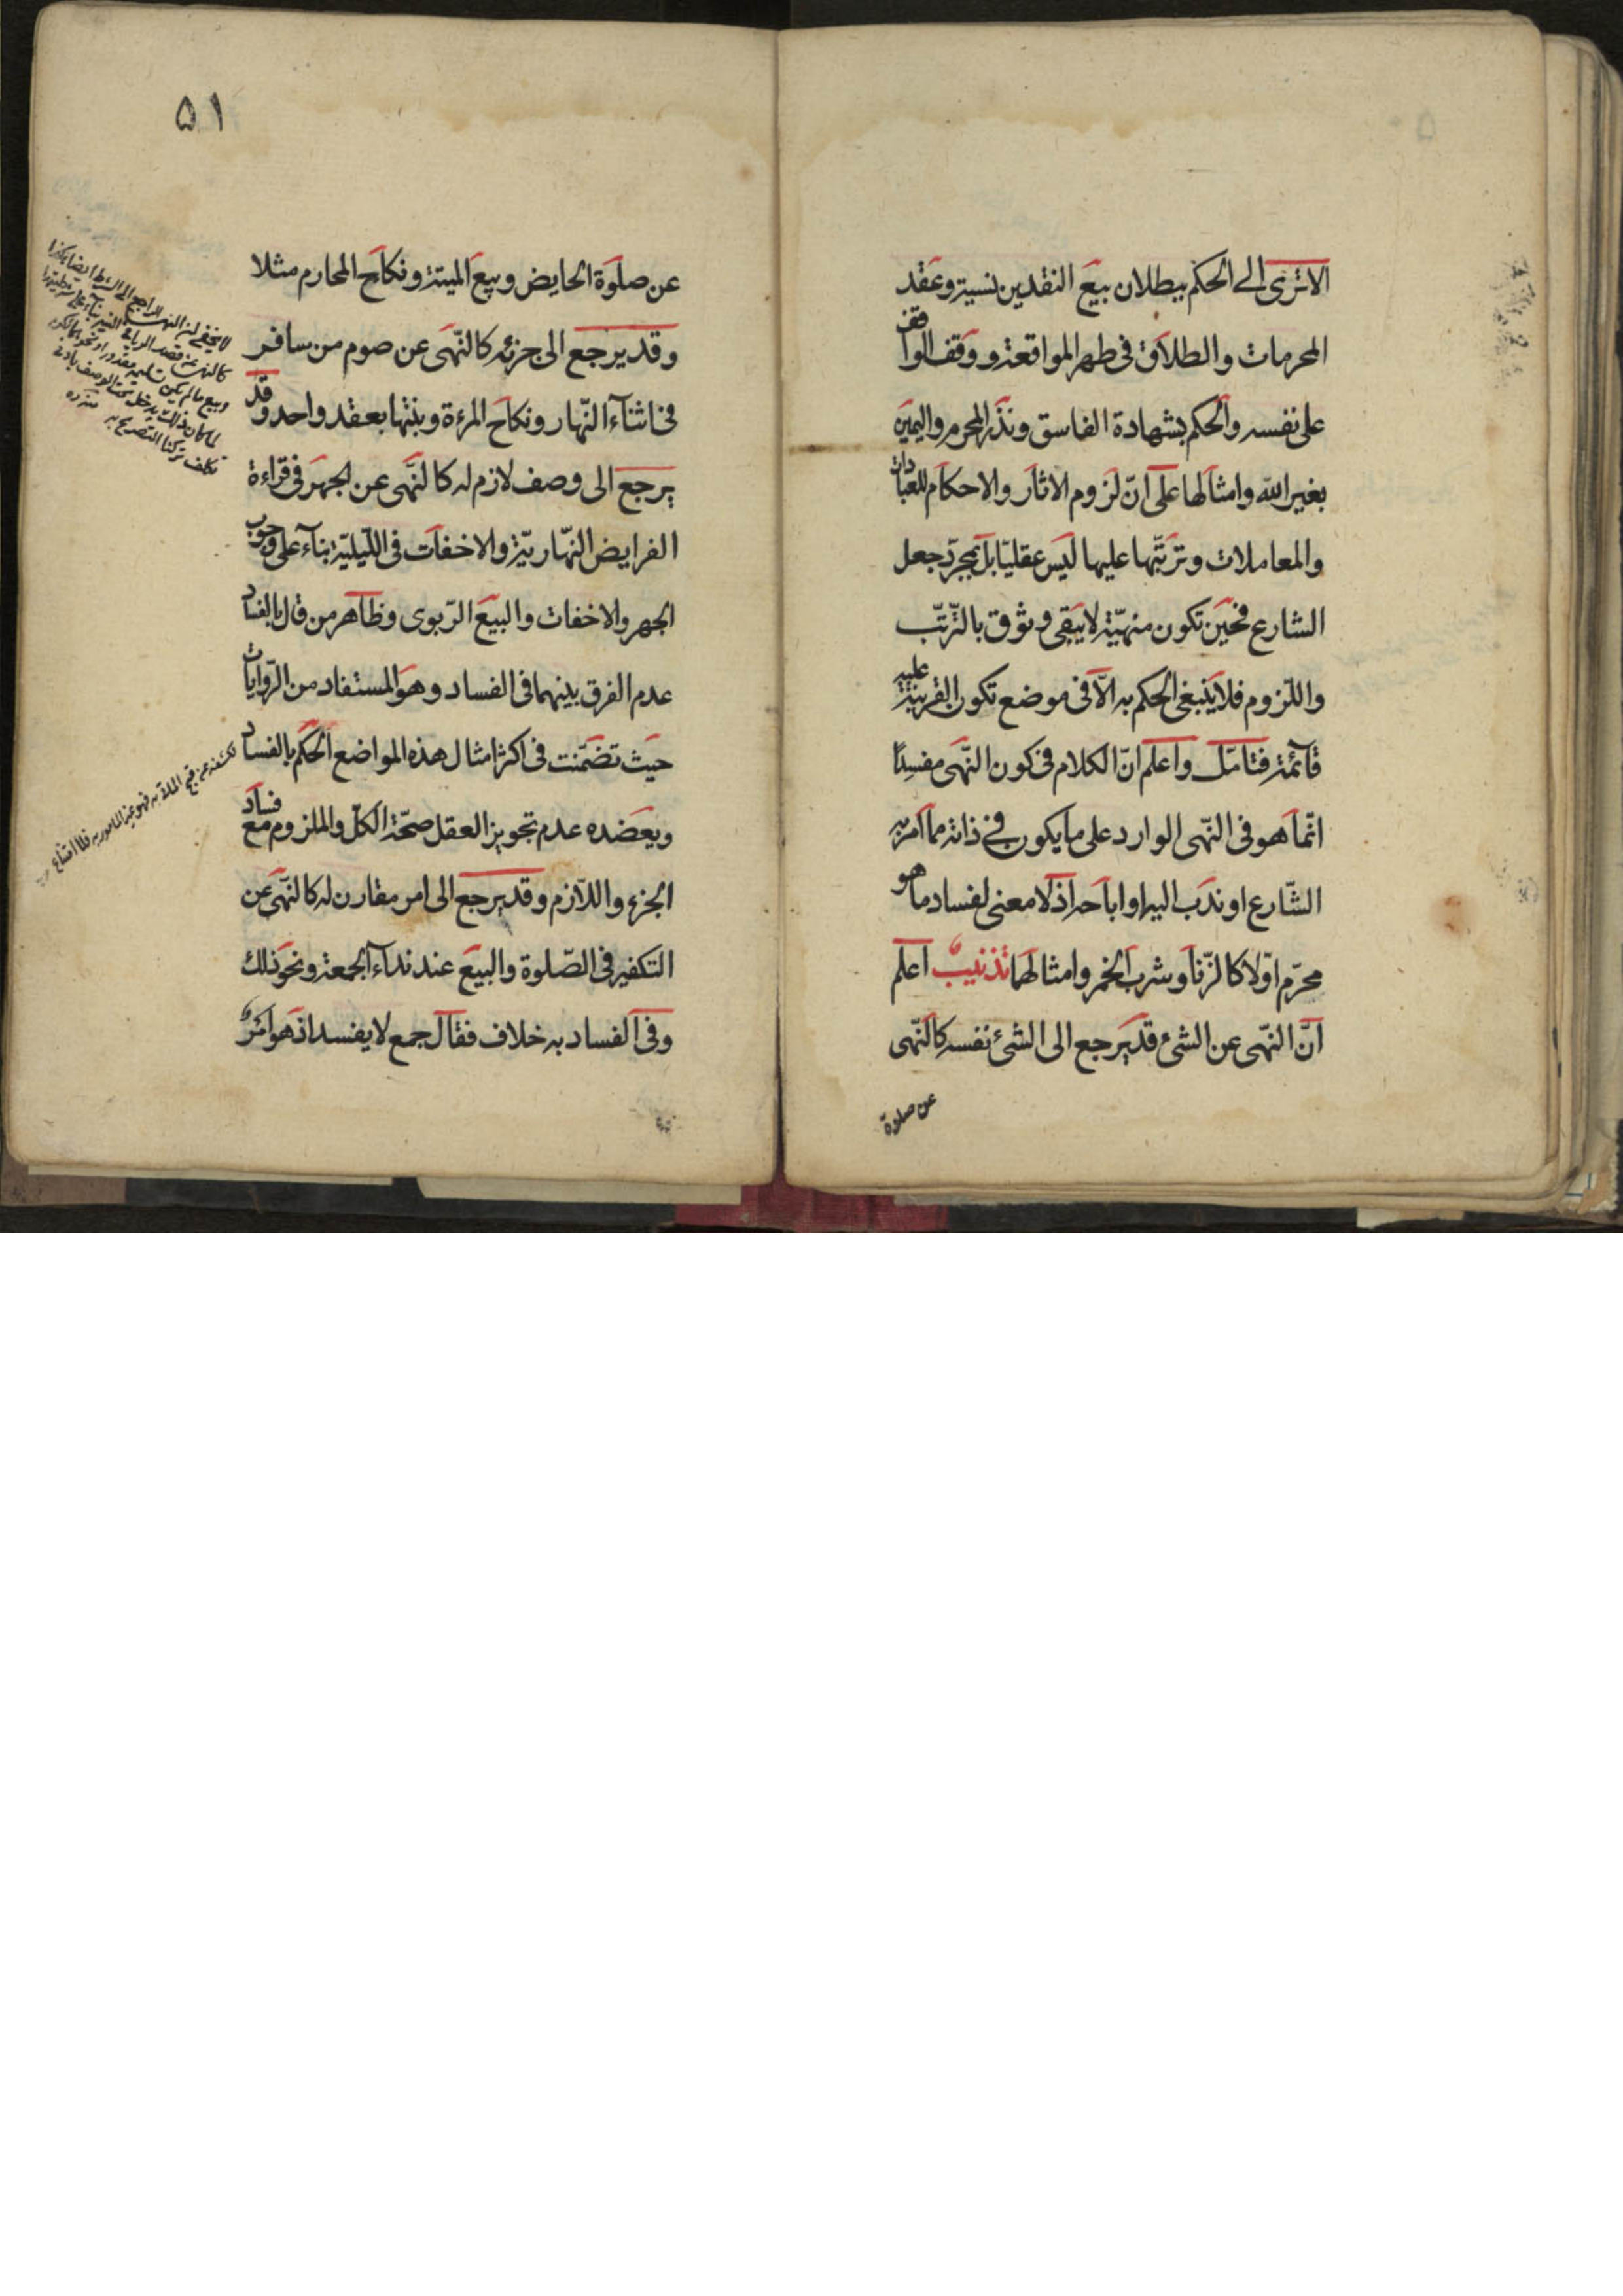 الا ترى الى الحكم ببطلان بيع النقدين نسية وعقد
المحرمات والطلاق فى طهر المواقعة و وقف الواقف
على نفسه والحكم بشهادة الفاسق ونذر المحرم واليمين
بغير الله وامثالها على انّ لزوم الاثار والاحكام للعبادات
والمعاملات وترتّبها عليها ليس عقليّا بل بمجرّد جعل
الشارع فحين تكون منهيّة لا يبقى وثوق بالترّتّب
واللّزوم فلا ينبغى الحكم به الّا فى موضع تكون القرينة عليه
قائمة فتامّل واعلم انّ الكلام فى كون النّهى مفسدًا
انّما هو فى النّهى الوارد على ما يكون فى ذاته مما امر به
الشّارع او ندب اليه او اباحه اذ لا معنى لفساد ما هو
محرّم اوّلا كالزّنا وشرب الخمر وامثالها تذنيبٌ اعلم
انّ النّهى عن الشئ قد يرجع الى الشئ نفسه كالنّهى
عن صلوة
۵۱
عن صلوة الحايض وبيع الميتة ونكاح المحارم مثلا
وقد يرجع الى جزئه كالنّهى عن صوم من سافر
فى اثنآء النّهار ونكاح المرءة وبنتها بعقد واحد وقد
يرجع الى وصف لازم له كالنّهى عن الجهر فى قراءة
الفرايض النّهاريّة والاخفات فى اللّيليّة بنآء على وجوب
الجهر والاخفات والبيع الرّبوى وظاهر من قال بالفساد
عدم الفرق بينهما فى الفساد وهو المستفاد من الرّوايات
حيث تضمّنت فى اكثر امثال هذه المواضع الحكم بالفساد
ويعضده عدم تجويز العقل صحّة الكلّ والملزوم مع فساد
الجزء واللّازم وقد يرجع الى امر مقارن له كالنّهى عن
التكفير فى الصّلوة والبيع عند ندآء الجمعة ونحو ذلك
وفى الفساد به خلاف فقال جمع لا يفسد اذ هو امرٌ
لا يخفى ان النهى الراجع الى الشرط ايضا
وبيع ما لم يكن تسليمه مقدورا
تكلف تركنا التصريح به منه ره